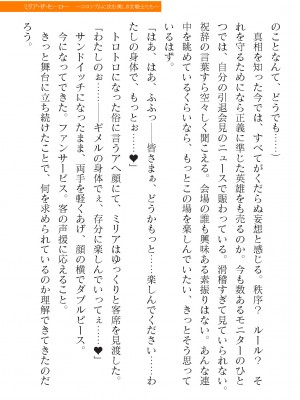 ミリア・ザ・ヒーロー
のことなんて、どうでも……)
真相を知った今では、すべてがくだらぬ妄想と感じる。秩序？　ルール？　そ
れを守るためになら正義に準じた英雄をも売るのか。今も数あるモニターのひと
つには、自分の引退会見のニュースで賑わっている。滑稽すぎて見ていられない。
祝辞の言葉すら空々しく聞こえる。会場の誰も興味ある素振りはない。あんな連
中を眺めているくらいなら、もっとこの場を楽しんでいたい、きっとそう思って
いるはず。
「はあ、はあ、ふふ♥――皆さまぁ、どうかもっと……楽しんでくださいませ、わ
たしの身体で、もっとぉ……♥」
トロトロになった俗に言うアヘ顔にて、ミリアはゆっくりと客席を見渡した。
「わたしのぉ……ギメルの身体でぇ、存分に楽しんでいってぇ……♥」
サンドイッチになったまま、両手を軽くあげ、顔の横でダブルピース。
今になってできた。ファンサービス。客の声援に応えること。
きっと舞台に立ち続けたことで、何を求められているのか理解できてきたのだ
ろう。